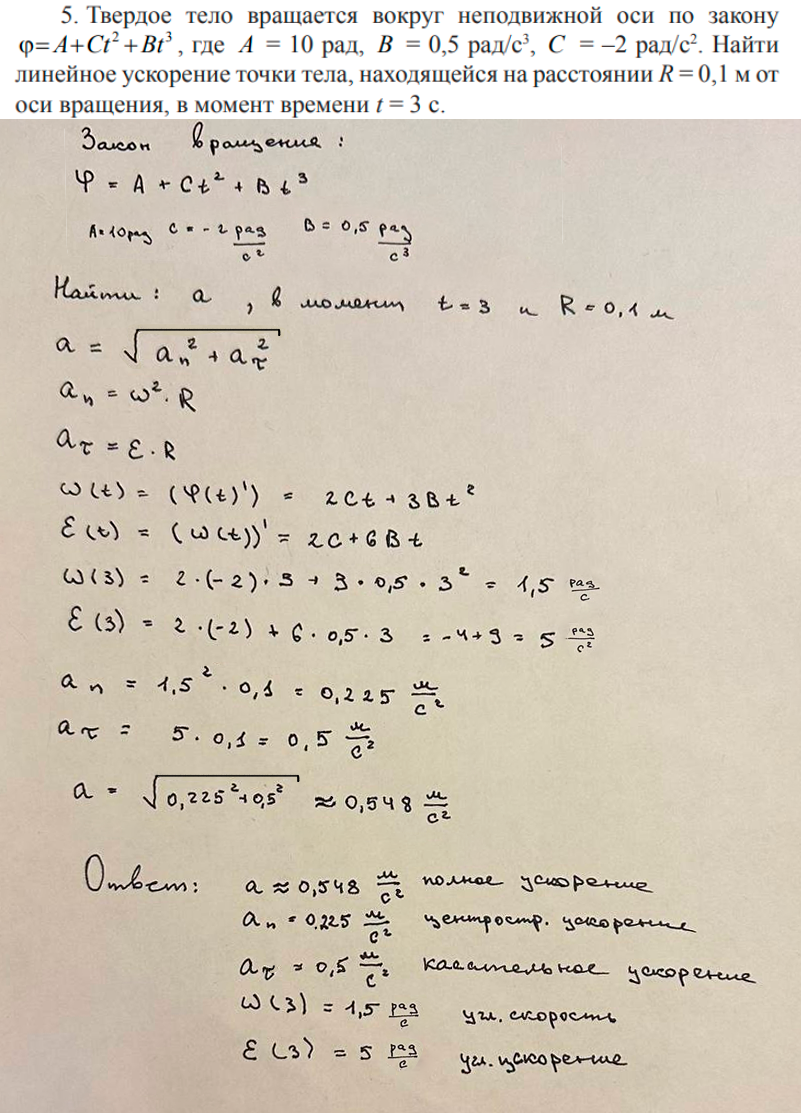 5. Твердое тело вращается вокруг неподвижной оси по закону
φ=A+Ct²+Bt³, где A = 10 рад, B = 0,5 рад/с³, C = –2 рад/с². Найти
линейное ускорение точки тела, находящейся на расстоянии R = 0,1 м от
оси вращения, в момент времени t = 3 с.
Закон вращения :
φ = A + Ct² + Bt³
A=10рад C = -2 рад/с² B = 0,5 рад/с³
Найти : a , в момент t = 3 и R = 0,1 м
a = √(aₙ² + a_τ²)
aₙ = ω² · R
a_τ = ε · R
ω(t) = (φ(t)') = 2Ct + 3Bt²
ε(t) = (ω(t))' = 2C + 6Bt
ω(3) = 2·(-2)·3 + 3·0,5·3² = 1,5 рад/с
ε(3) = 2·(-2) + 6·0,5·3 = -4+9 = 5 рад/с²
aₙ = 1,5² · 0,1 = 0,225 м/с²
a_τ = 5·0,1 = 0,5 м/с²
a = √(0,225²+0,5²) ≈ 0,548 м/с²
Ответ: a ≈ 0,548 м/с² полное ускорение
aₙ = 0.225 м/с² центростр. ускорение
a_τ = 0,5 м/с² касательное ускорение
ω(3) = 1,5 рад/с угл. скорость
ε(3) = 5 рад/с угл. ускорение